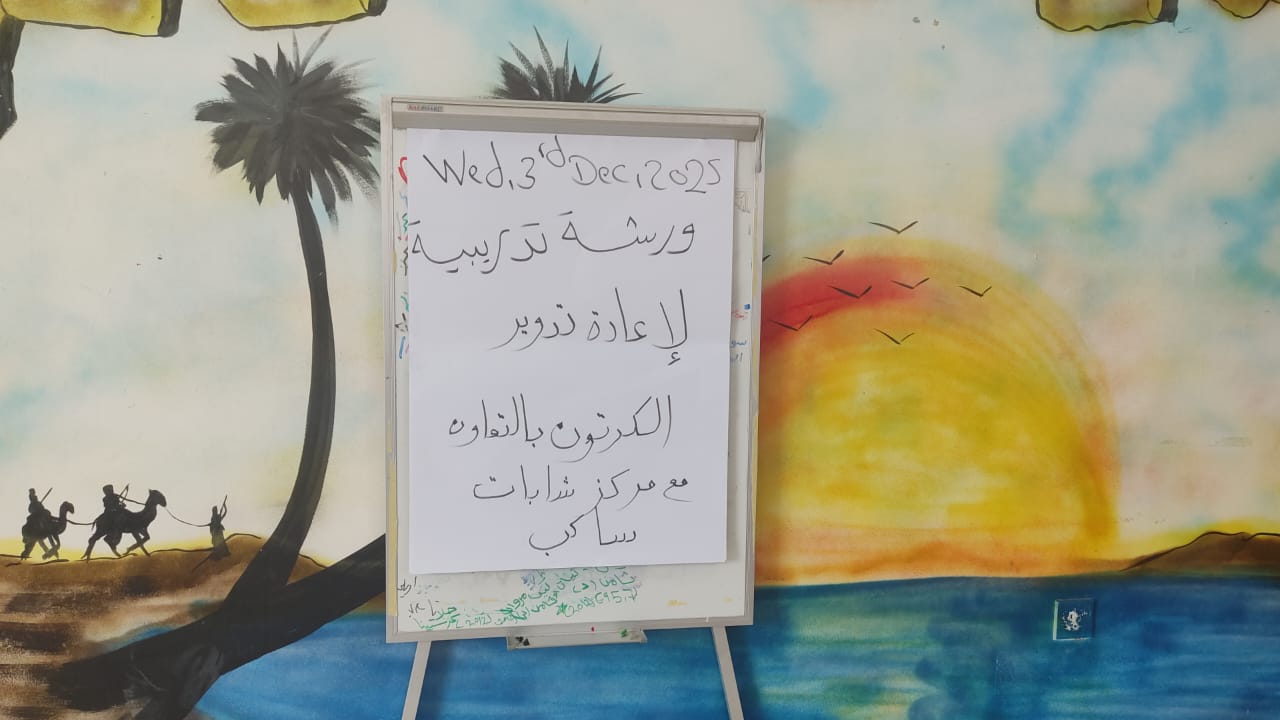 Wed, 3rd Dec, 2025
ورشة تدريبية
لإعادة تدوير
الكرتون بالتعاون
مع مركز شابات
ساكب